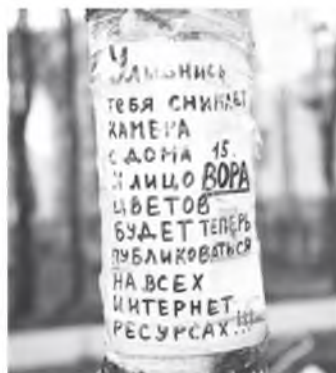 Улыбнись
тебя снимает
камера
с дома 15.
и лицо ВОРА
цветов
будет теперь
публиковаться
на всех
интернет
ресурсах...!!!